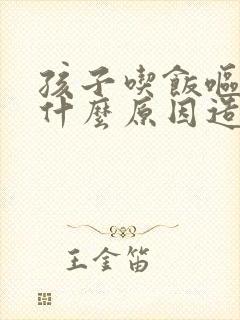 孩子喫飯嘔
什麼原因造
王金笛